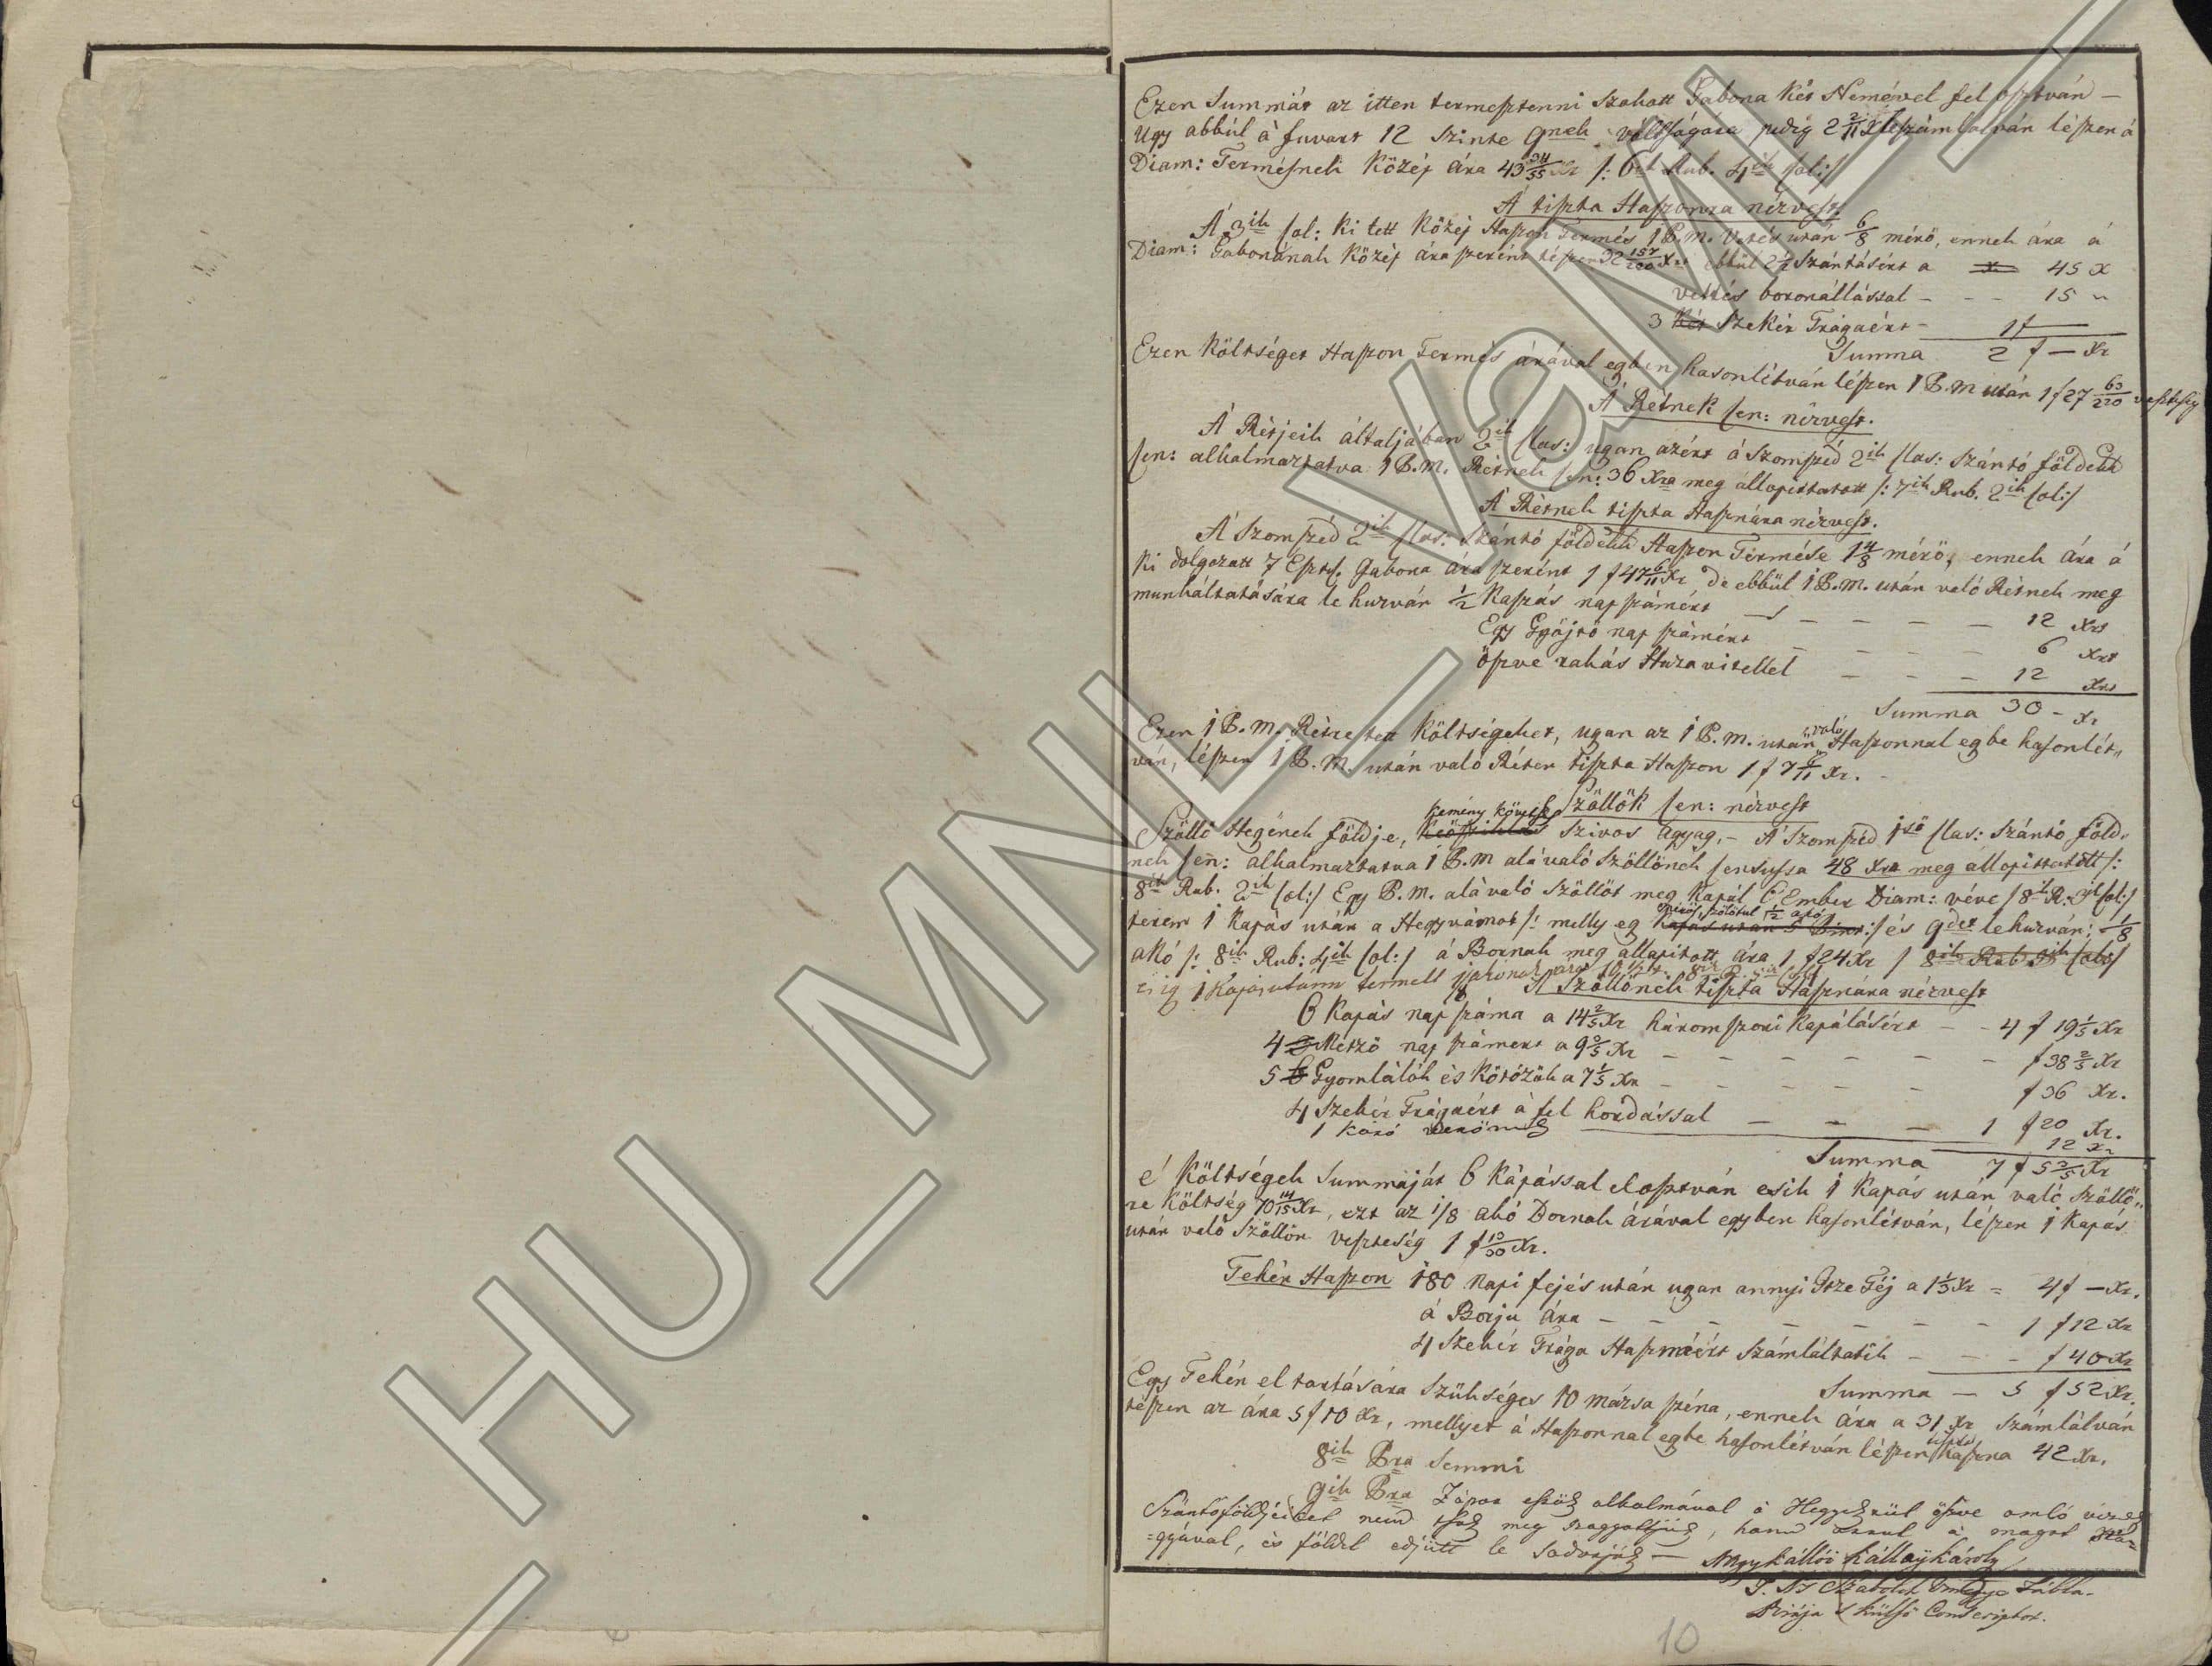 Ezen Summát az itten termesztenni szokott Gabona két Nemével fel osztván –
Ugy abbúl à fuvart 12 szinte 9nek váltságára pedig 2 2/11 X leszámlálván lészen á
Diam: Termésnek Közép ára 43 34/55 Xr /: 6ik Rub. 4ik Col:/
A' tiszta Haszonra nézvest.
A' 3ik Col: Ki tett Közép Haszon Termés 1 P.M. Vetés után 6/8 mérő, ennek ára á
Diam: Gabonának Közép ára szerént tészen 32 157/220 Xr ebbül 2 1/2 Szántásért a 45 X
vettés boronállással – – – 15 "
3 Két Szekér Trágáért – 1 f —
Summa 2 f — Xr
Ezen Költséget Haszon Termés árával egyben hasonlétván lészen 1 P.M után 1 f 27 63/220 veszteség
A' Rétnek Cen: nézvest.
A' Rétjeik általjában 2ik Clas: ugan azért á Szomszéd 2ik Clas: Szántó földekk
Cen: alkalmaztatva 1 P.M. Rétnek Cen: 36 Xra meg állapittatott /: 7ik Rub. 2ik Col:/
A' Rétnek tiszta Hasznára nézvest.
A' Szomszéd 2ik Clas: Szántó földekk Haszon Termése 1 4/8 mérő, ennek ára á
Ki dolgozatt 7 Eszt. Gabona ára szerént 1 f 47 6/11 Xr de ebbül 1 P.M. után való Rétnek meg
munkáltatására le huzván 1/2 Kaszás nap számért – – – – 12 Xrt
Egy Gyöjtő nap számért – – – – 6 Xrt
öszve rakás Haza vitellel – – – 12 Xrt
Summa 30 – Xr
Ezen 1 P.M. Rétre tett Költségeket, ugan az 1 P.M. után való Haszonnal egbe hasonlét„
ván, lészen 1 P.M. után való Réten tiszta Haszon 1 f 7 6/11 Xr.
Szöllők Cen: nézvest
Szöllő Hegének földje, kemény köveses szivos agyag, – A' Szomszéd 1ső Clas: Szántó föld„
nek Cen: alkalmaztatva 1 P.M alá való Szöllőnek Censussa 48 Xra meg állapittatott /:
8ik Rub. 2ik Col:/ Egy P.M. alá való Szöllőt meg Kapál 6 Ember Diam: véve / 8ik R: 3ik Col:/
terem 1 Kapás után a Hegyvámot /: melly eg 1/2 akó :/ és 9det lehuzván; 1/8
akó /: 8ik Rub: 4ik Col:/ á Bornak meg állapitott ára 1 f 24 Xr / 8ik Rub 5ik Col:/
A' Szöllőnek tiszta Hasznára nézvest
6 Kapás nap száma a 14 2/5 Xr háromszori Kapálásért – – 4 f 19 1/5 Xr
4 Metsző nap számért a 9 3/5 Xr – – – – – – f 38 2/5 Xr
5 6 Gyomlálók és Kötözők a 7 1/5 Xr – – – – – f 36 Xr.
4 Szekér Trágáért á fel hordással – – – 1 f 20 Xr.
1 Karó verőnek 12 Xr
Summa 7 f 5 3/5 Xr
é Költségek Summáját 6 Kapással eloszván esik 1 Kapás után való Szöllő„
re Költség 70 14/15 Xr, ezt az 1/8 akó Bornak árával egyben hasonlétván, lészen 1 Kapás
után való Szöllőn veszteség 1 f 13/30 Xr.
Tehén Haszon 180 Napi fejés után ugan annyi Itze Téj a 1 1/3 Xr = 4 f — Xr.
á Borju ára – – – – – – – 1 f 12 Xr
4 Szekér Trága Haszmáért Számláltatik – – – f 40 Xr
Summa – 5 f 52 Xr.
Egy Tehén el tartására Szükséges 10 mázsa széna, ennek ára a 31 Xr Számlálván
tészen az ára 5 f 10 Xr, mellyet á Haszonnal egbe hasonlétván lészen tiszta haszna 42 Xr.
8ik Pra Semmi
9ik Pra Zápor essők alkalmával a Hegyekrül öszve omló vizek
Szántóföldjeiket nemd tsak meg szaggattják, hanem azzal a magot
=gyával, és földel edjütt le sodorják —
Nagy kállói Kállaÿ Károly
T. Ns Szabolcs Vmegye Tábla-
Birája s külső Conscriptor.
10
HU_MNL_VaML_